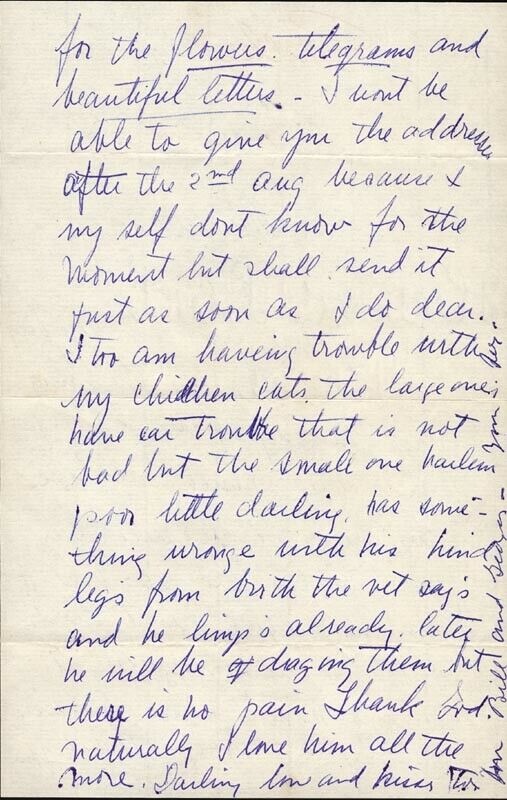 for the flowers. telegrams and
beautiful letters - I wont be
able to give you the addresses
after the 2nd aug because I
my self dont know for the
moment but shall send it
just as soon as I do dear.
I too am haveing trouble with
my children cats. the large ones
have ear trouble that is not
bad but the small one harlem
poor little darling. has some-
thing wronge with his hind
legs from birth the vet say's
and he limp's already. later
he will be draging them but
there is no pain Thank God.
naturally I love him all the
more. Darling love and kisses to
you Bill and